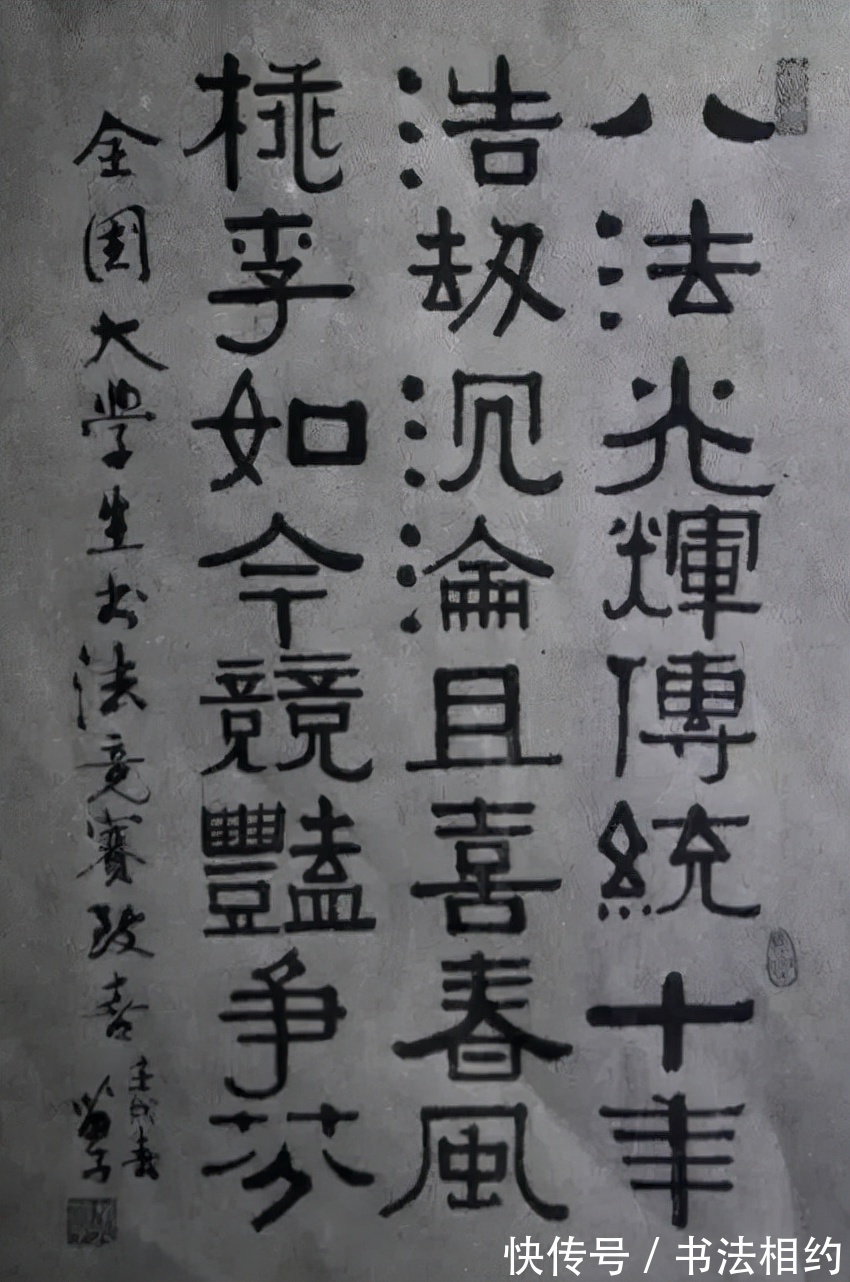 八法光輝傳統十年
浩劫沉淪且喜春風
桃李如今競豔爭芬
全國大学生书法竞賽致喜
壬戌春
快传号 / 书法相约